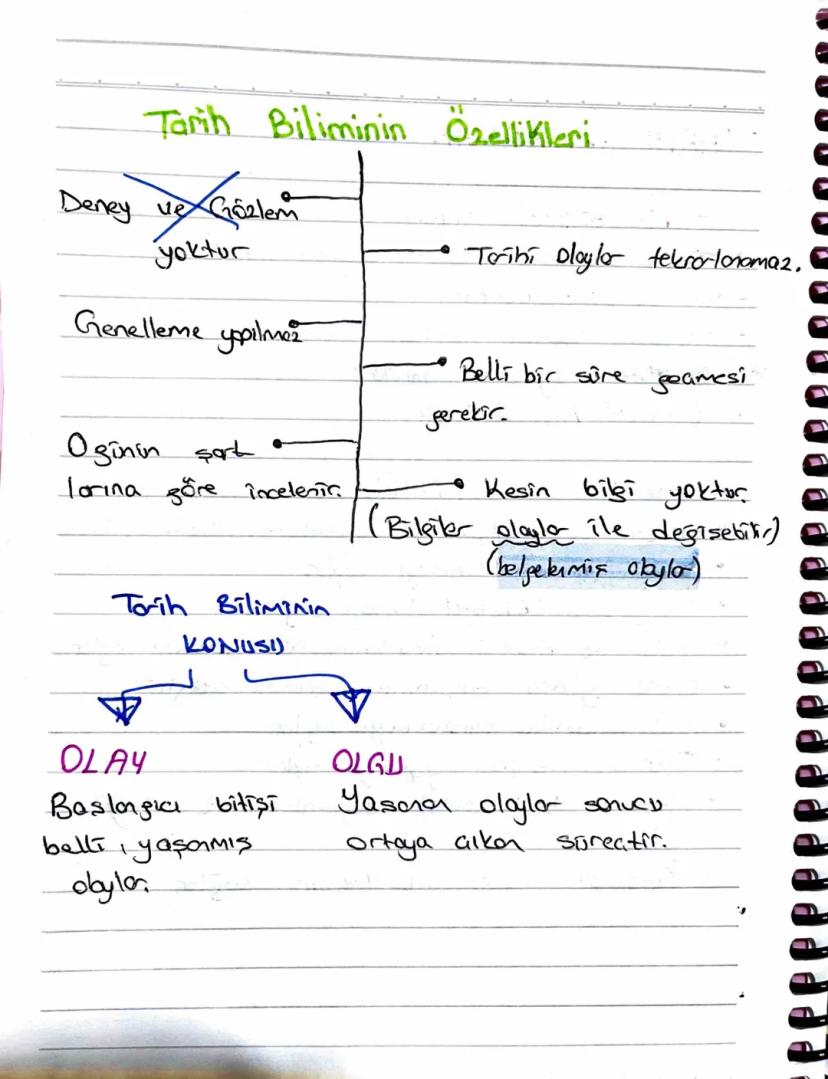 Tarih Biliminin Özellikleri
Deney ve Gözlem
yoktur
Tarihi Olaylar tekrarlanamaz.
Genelleme yapılmaz
Belli bir süre geçmesi
gerekir.
O günün şart
larına göre incelenir.
Kesin bilgi yoktur.
(Bilgiler olaylar ile değişebilir)
(belgelenmiş olaylar)
Tarih Biliminin
KONUSU
OLAY
Başlangıcı bitişi
belli, yaşanmış
olaylar.
OLGU
Yaşanan olaylar sonucu
ortaya çıkan süreçtir.